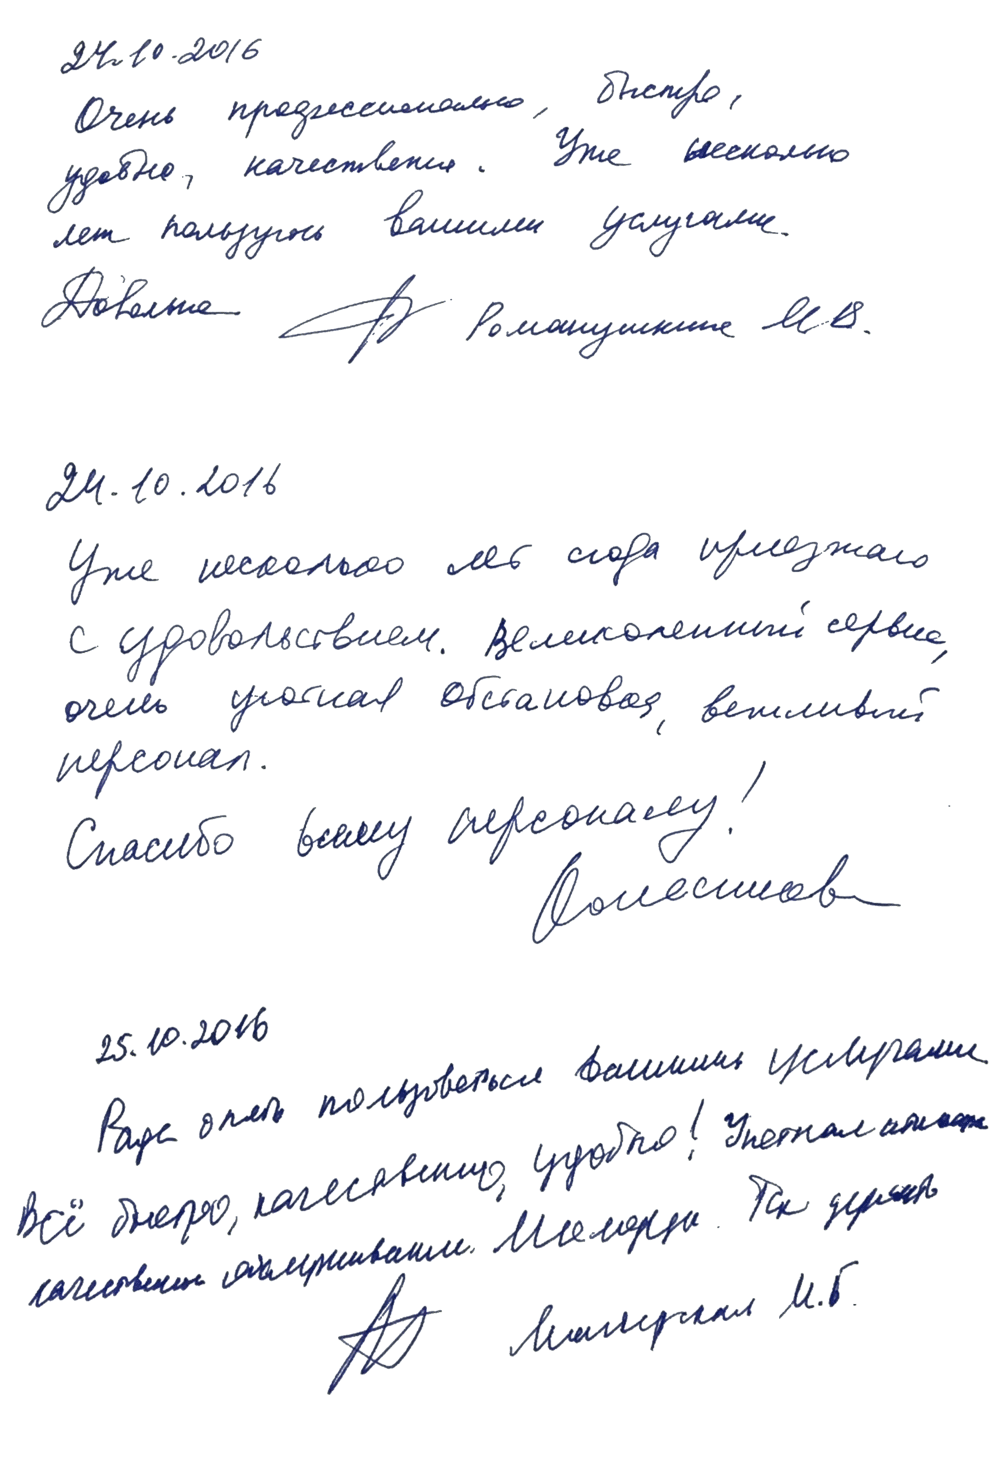 24.10.2016
Очень профессионально, быстро,
удобно, качественно. Уже несколько
лет пользуюсь вашими услугами.
Довольна Романушкина М.В.
24.10.2016
Уже несколько лет сюда приезжаю
с удовольствием. Великолепный сервис,
очень уютная обстановка, вежливый
персонал.
Спасибо всему персоналу!
25.10.2016
Рада опять пользоваться вашими услугами
Всё быстро, качественно, удобно! Уютная атмосфера
качественное обслуживание. Молодцы. Так держать
И.Б.